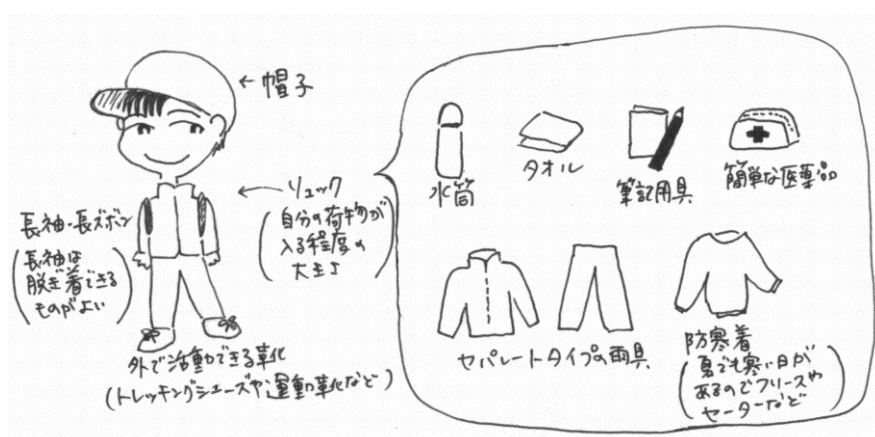 帽子
リュック
(自分の荷物が
入る程度の
大きさ)
長袖・長ズボン
(長袖は
脱ぎ着できる
ものがよい)
外で活動できる靴
(トレッキングシューズや運動靴など)
水筒
タオル
筆記用具
簡単な医薬品
セパレートタイプの雨具
防寒着
(夏でも寒い日が
あるのでフリースや
セーターなど)